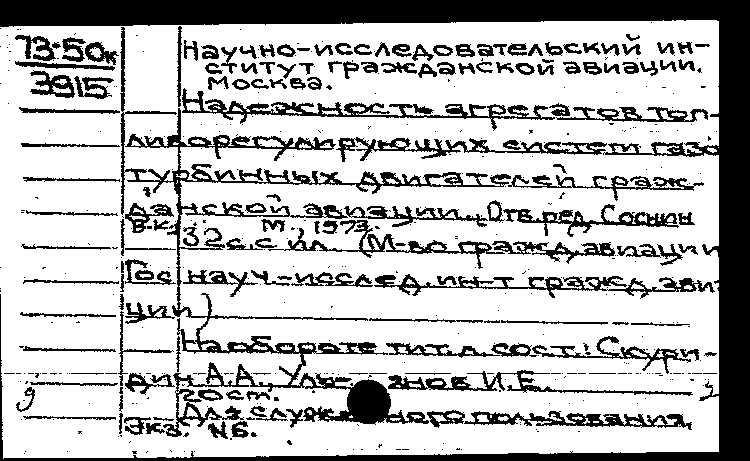 73-50к
3915
Научно-исследовательский ин-
ститут гражданской авиации.
Москва.
Надежность агрегатов топ-
ливорегулирующих систем газо
турбинных двигателей граж-
данской авиации. Отв. ред. Соснин
В.К. М., 1973.
32с. с ил. (М-во гражд. авиации
Гос науч.-исслед. ин-т гражд. авиа
ции)
На обороте тит. л. сост.: Скури-
дин А.А., Улья-нов И.Е.
20 см.
Для служебного пользования.
Экз. №Б.